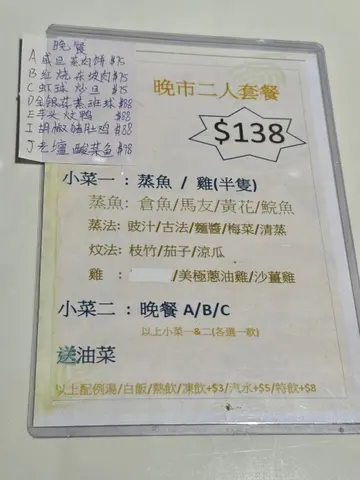 晚餐
A 咸旦蒸肉餅 $75
B 红烧东坡肉 $75
C 虾球炒旦 $75
D 金銀蒜蒸斑球 $88
E 芋头炆鸭 $88
I 胡椒猪肚鸡 $88
J 老壇酸菜鱼 $98
晚市二人套餐
$138
小菜一：蒸魚 / 雞(半隻)
蒸魚：倉魚/馬友/黃花/鯇魚
蒸法：豉汁/古法/麵醬/梅菜/清蒸
炆法：枝竹/茄子/涼瓜
雞：/美極蔥油雞/沙薑雞
小菜二：晚餐 A/B/C
以上小菜一&二(各選一款)
送油菜
以上配例湯/白飯/熱飲/凍飲+$3/汽水+$5/特飲+$8